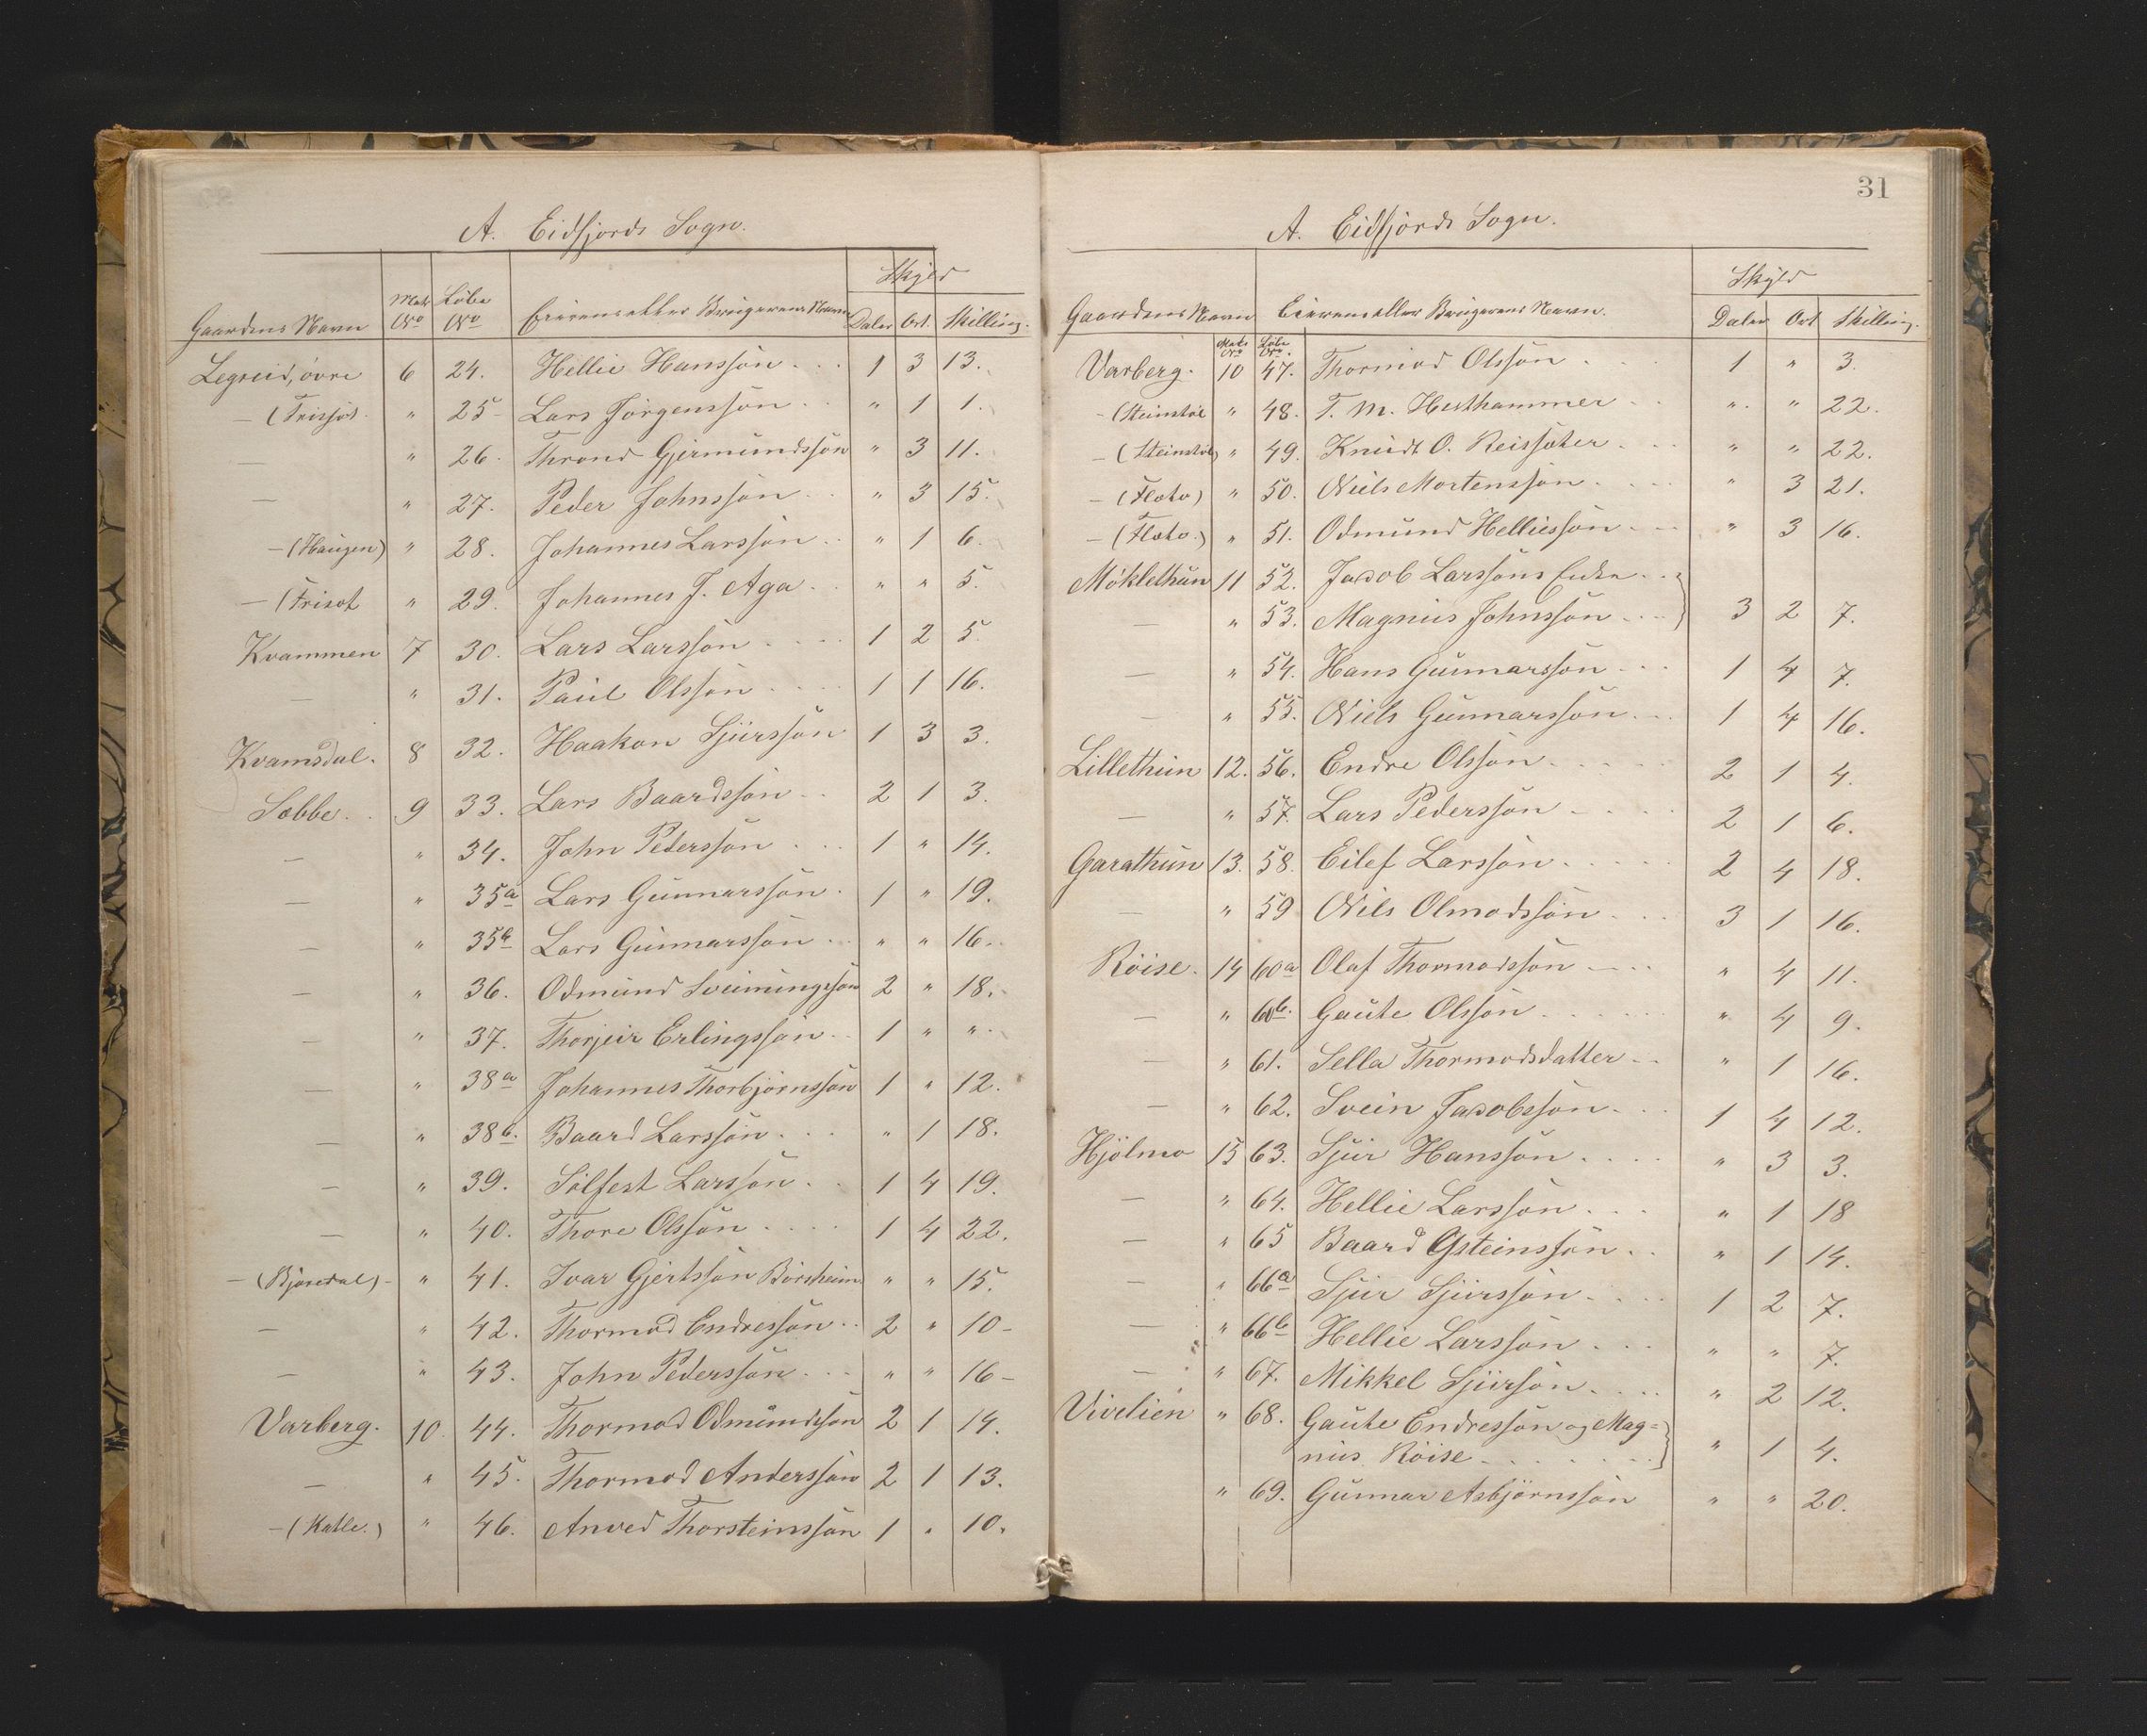 A. Eidfjords Sogn.
Gaardens Navn Matr No Löbe No Eierens eller Brugerens Navn Skyld Daler Ort Skilling.
Legreid, övre 6 24. Hellie Hanssön 1 3 13.
— " 25 Lars Jörgenssön " 1 1.
— " 26. Thrond Gjermundssön " 3 11.
— " 27. Peder Johnssön " 3 15.
— (Haugen) " 28. Johannes Larssön " 1 6.
— " 29. Johannes J. Aga " " 5.
Kvammen 7 30. Lars Larssön 1 2 5
— " 31. Paul Olssön 1 1 16.
Kvamsdal. 8 32. Haakon Sjurssön 1 3 3.
Sæbbe. 9 33. Lars Baardssön 2 1 3.
— " 34. John Peterssön 1 " 14.
— " 35a Lars Gunnarssön 1 " 19.
— " 35b Lars Gunnarssön " " 16.
— " 36. Odmund Sveinungssön 2 " 18.
— " 37. Thorjeir Erlingssön 1 " ".
— " 38a Johannes Thorbjörnssön 1 " 12.
— " 38b. Baard Larssön " 1 18.
— " 39. Sölfest Larssön 1 4 19.
— " 40. Thore Olssön 1 4 22.
— " 41. Ivar Gjertssön Börsheim " " 15.
— " 42. Thormod Endressön 2 " 10 -
— " 43. John Pederssön " " 16 -
Varberg. 10 44. Thormod Odmundssön 2 1 14.
— " 45. Thormod Anderssön 2 1 13.
— (Katle.) " 46. Anved Thorsteinssön 1 " 10.
31
A. Eidfjords Sogn.
Gaardens Navn Matr No Löbe No. Eierens eller Brugerens Navn. Skyld Daler Ort Skilling.
Varberg. 10 47. Thormod Olssön 1 " 3.
— (Steinstöl " 48. T. M. Hesthammer " " 22.
— (Steinstöl) " 49. Knudt O. Reissæter " " 22.
— (Flato) " 50. Niels Mortenssön " 3 21.
— (Flato.) " 51. Odmund Helliessön " 3 16.
Möklethun 11 52. Jacob Larssöns Enke
— " 53. Magnus Johnssön 3 2 7.
— " 54. Hans Gunnarssön 1 4 7.
— " 55. Niels Gunnarssön 1 4 16.
Lillethun 12. 56. Endre Olssön 2 1 4.
— " 57. Lars Pederssön 2 1 6.
Garathun 13. 58. Eilef Larssön 2 4 18.
— " 59 Nils Olmodssön 3 1 16.
Röise. 14 60a Olaf Thormodssön " 4 11.
— " 60b. Gaute Olssön " 4 9.
— " 61. Sella Thormodsdatter " 1 16.
— " 62. Svein Jacobssön 1 4 12.
Hjölmo 15 63. Sjur Hanssön " 3 3.
— " 64. Hellie Larssön " 1 18
— " 65 Baard Ysteinssön " 1 14.
— " 66a Sjur Sjurssön 1 2 7.
— " 66b Hellie Larssön " " 7.
— " 67. Mikkel Sjursön " 2 12.
Vivelien " 68. Gaute Endressön og Mag-
nus Röise " 1 4.
" 69. Gunnar Asbjörnssön " " 20.